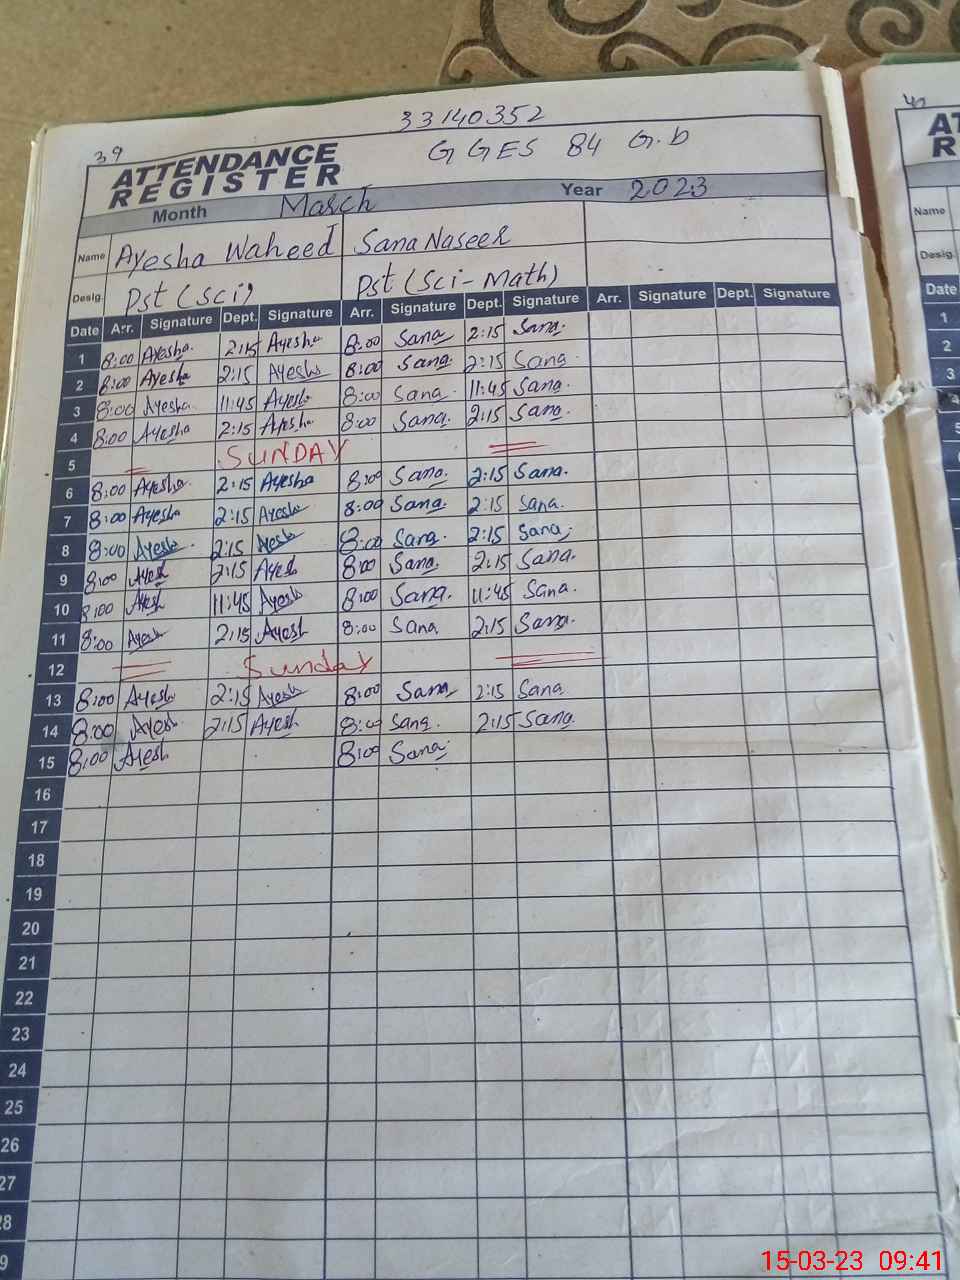 33140352
39
ATTENDANCE REGISTER
G GES 84 G.D
Month March Year 2023
Name Ayesha Waheed Sana Naseer
Desig. Pst (Sci) Pst (Sci-Math)
Date Arr. Signature Dept. Signature Arr. Signature Dept. Signature Arr. Signature Dept. Signature
1 8:00 Ayesha 2:15 Ayesha 8:00 Sana 2:15 Sana
2 8:00 Ayesha 2:15 Ayesha 8:00 Sana 2:15 Sana
3 8:00 Ayesha 11:45 Ayesha 8:00 Sana 11:45 Sana
4 8:00 Ayesha 2:15 Ayesha 8:00 Sana 2:15 Sana
5 SUNDAY
6 8:00 Ayesha 2:15 Ayesha 8:00 Sana 2:15 Sana
7 8:00 Ayesha 2:15 Ayesha 8:00 Sana 2:15 Sana
8 8:00 Ayesh 2:15 Ayesh 8:00 Sana 2:15 Sana
9 8:00 Ayesh 2:15 Ayesh 8:00 Sana 2:15 Sana
10 8:00 Ayesh 11:45 Ayesh 8:00 Sana 11:45 Sana
11 8:00 Ayesh 2:15 Ayesh 8:00 Sana 2:15 Sana
12 Sunday
13 8:00 Ayesh 2:15 Ayesh 8:00 Sana 2:15 Sana
14 8:00 Ayesh 2:15 Ayesh 8:00 Sana 2:15 Sana
15 8:00 Ayesh 8:00 Sana
16
17
18
19
20
21
22
23
24
25
26
27
28
9
40
AT
R
Name
Desig.
Date
1
2
3
4
5
15-03-23 09:41